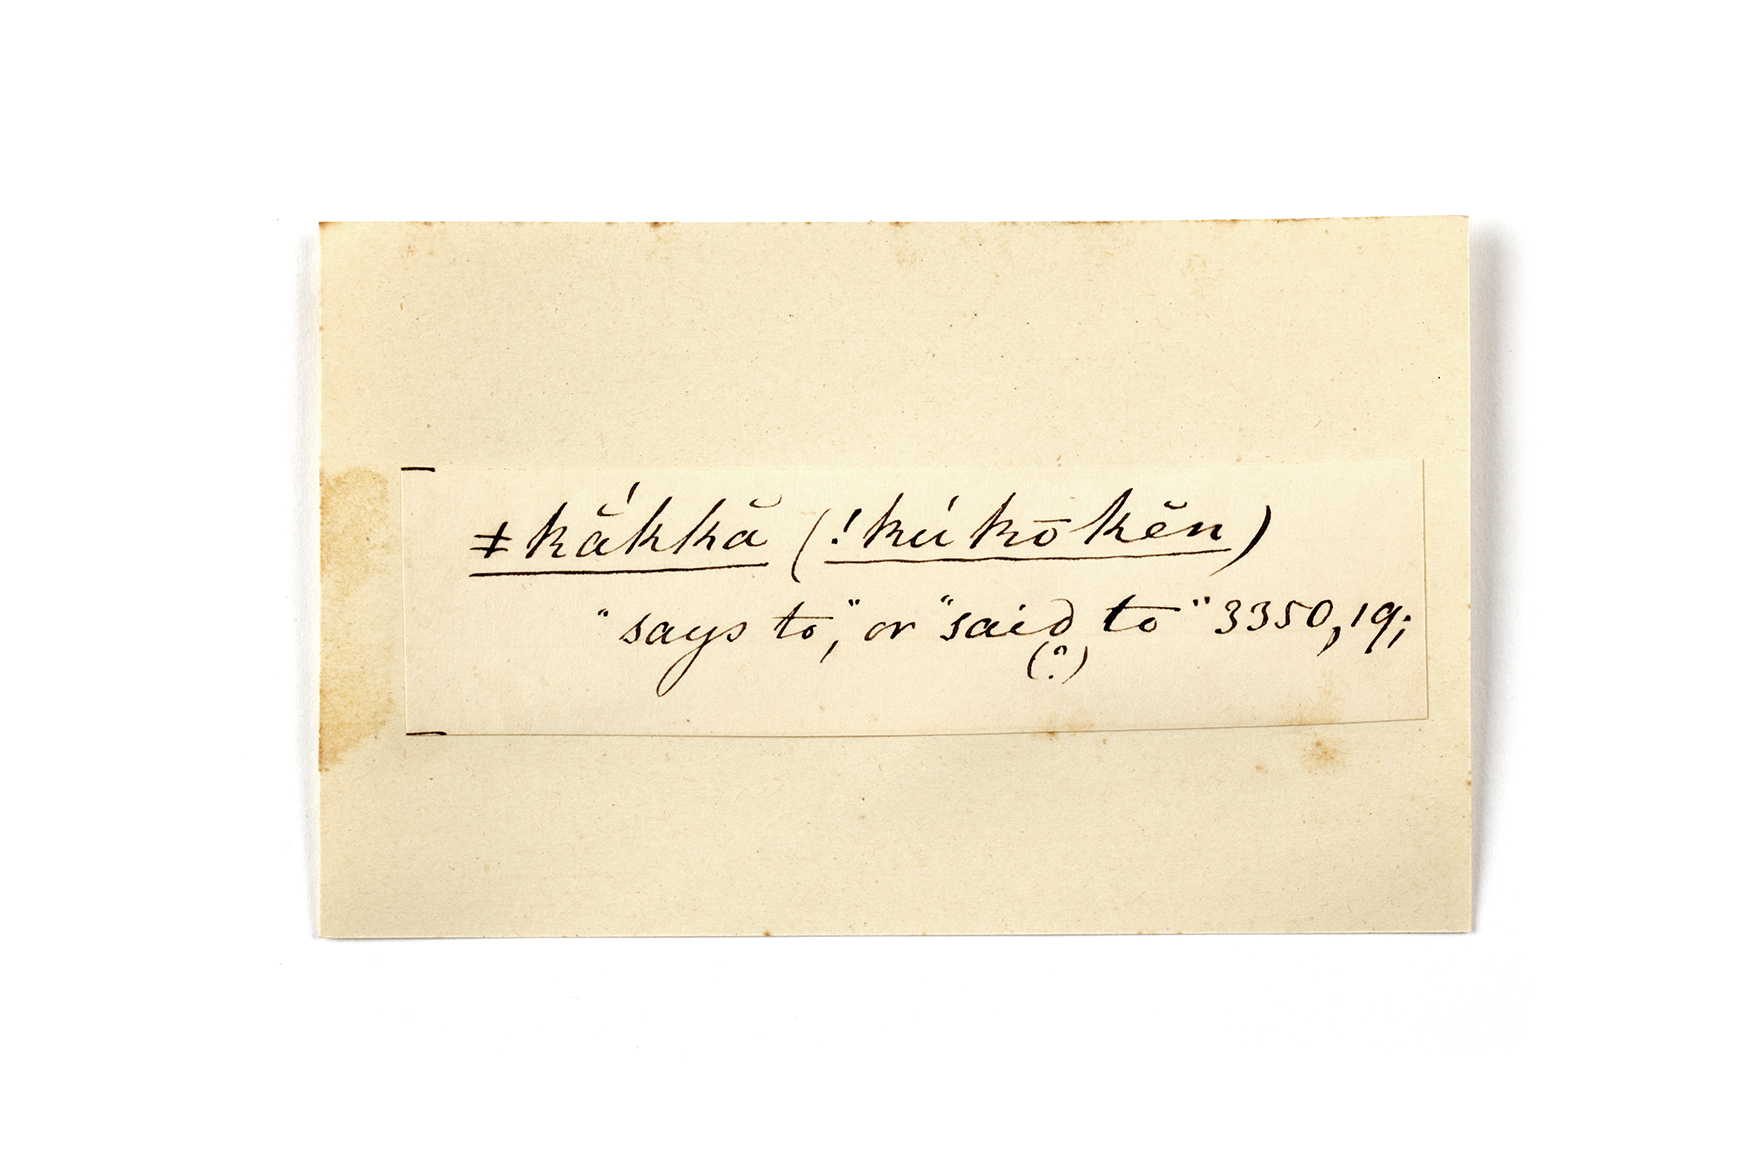 ǂkắkkă (!kúkō kĕn)
"says to," or "said to" 3350,19;
(?)